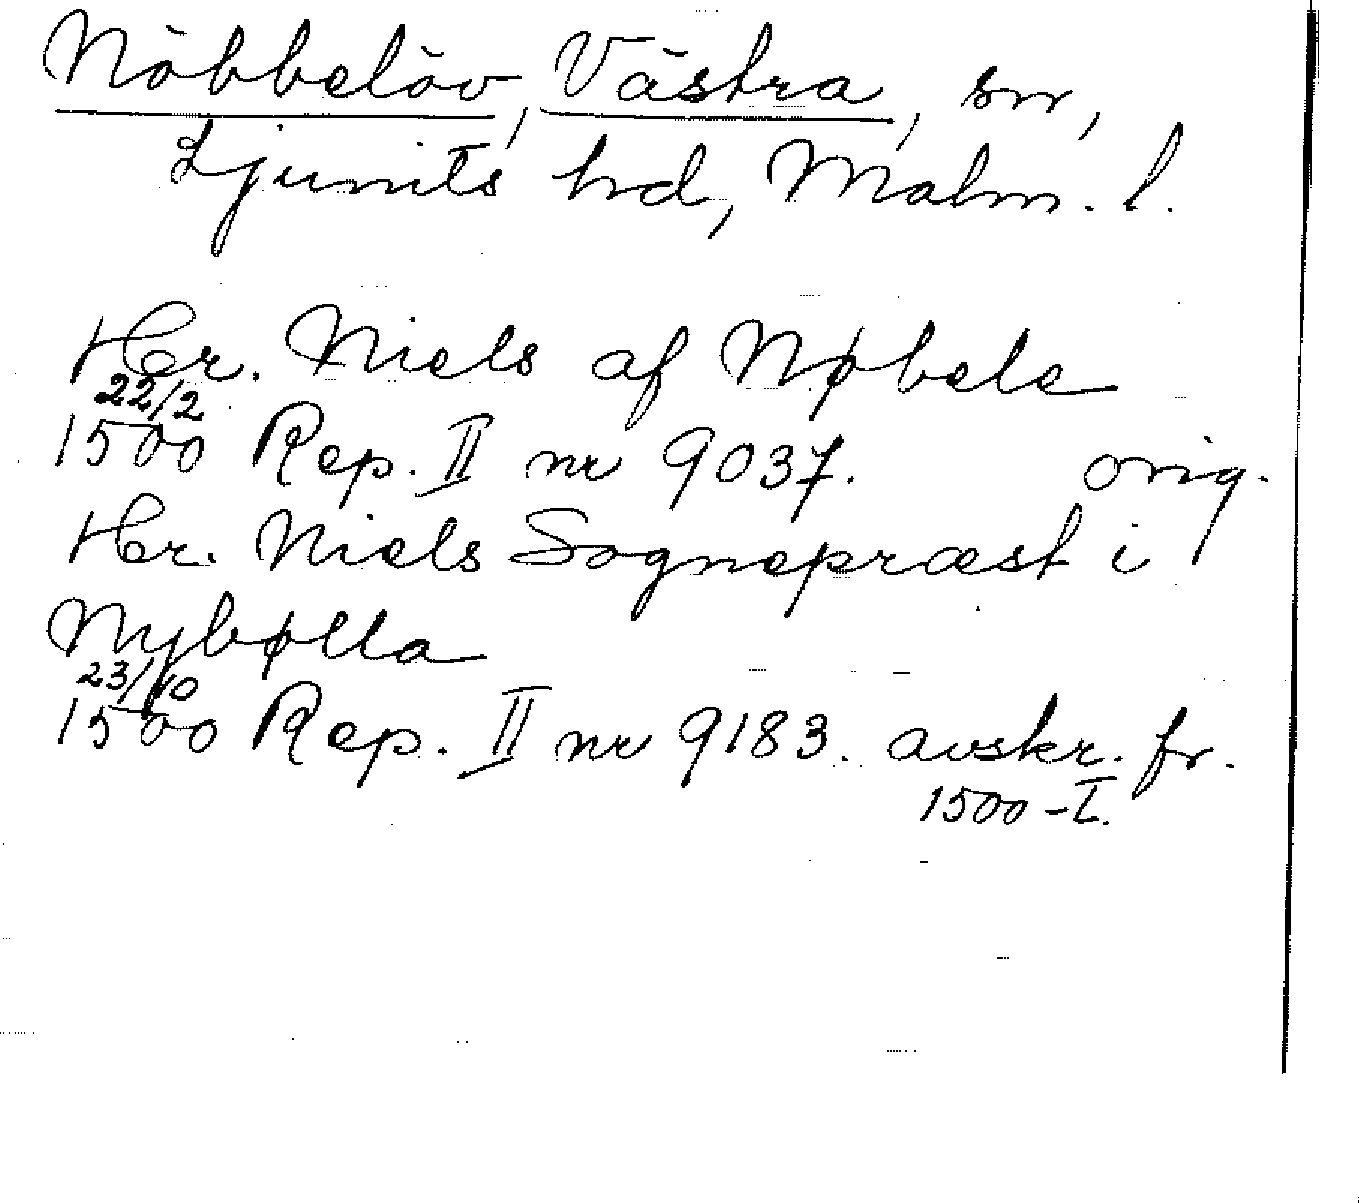 Nöbbelöv, Västra, sn,
Ljunits hd, Malm. l.
Her. Niels af Nøbele
22/2
1500 Rep. II nr 9037. orig.
Her. Niels Sognepræst i
Nybølla
23/10
1500 Rep. II nr 9183. avskr. fr.
1500-t.